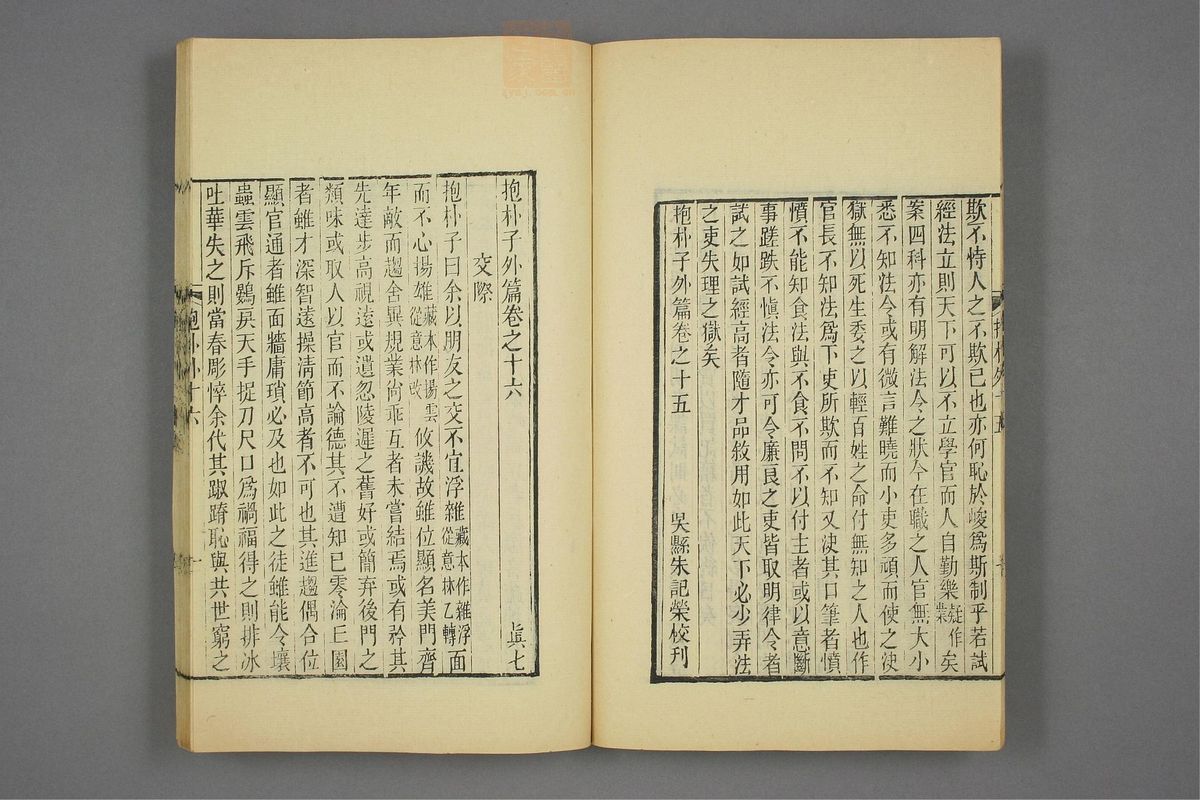 欺不恃人之不欺已也亦何恥於峻爲斯制乎若試
經法立則天下可以不立學官而人自勤樂疑作業矣
案四科亦有明解法令之狀今在職之人官無大小
悉不知法令或有微言難曉而小吏多頑而使之决
獄無以死生委之以輕百姓之命付無知之人也作
官長不知法爲下吏所欺而不知又决其口筆者憒
憒不能知食法與不食不問不以付主者或以意斷
事蹉跌不愼法令亦可令廉良之吏皆取明律令者
試之如試經高者隨才品敘用如此天下必少弄法
之吏失理之獄矣
抱朴子外篇卷之十五 吳縣朱記榮校刊
抱朴外十五
抱朴子外篇卷之十六 眞七
交際
抱朴子曰余以朋友之交不宜浮雜藏本作雜浮從意林乙轉面
而不心揚雄藏本作揚雲從意林改攸譏故雖位顯名美門齊
年敵而趨舍異規業尙乖互者未嘗結焉或有矜其
先達步高視遠或遺忽陵遲之舊好或簡弃後門之
類味或取人以官而不論德其不遭知已零淪丘園
者雖才深智遠操淸節高者不可也其進趨偶合位
顯官通者雖面牆庸瑣必及也如此之徒雖能令壤
蟲雲飛斥鷃戾天手捉刀尺口爲禍福得之則排冰
吐華失之則當春彫悴余代其踧踖恥與共世窮之
抱朴外十六